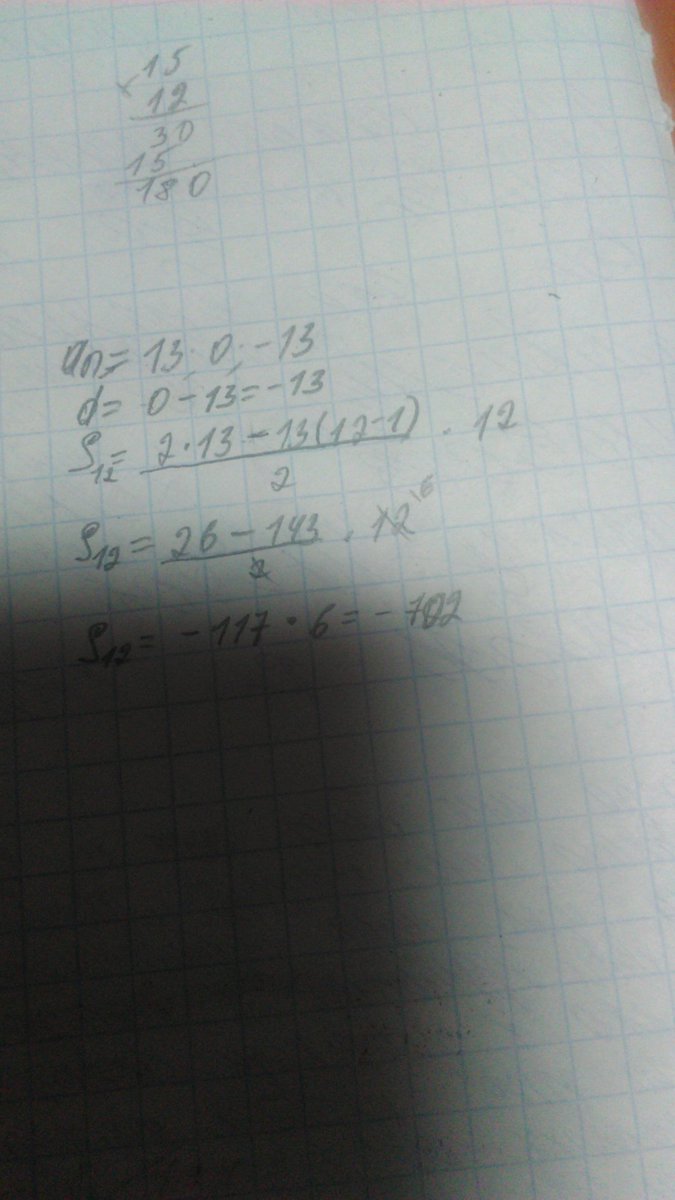 15
× 12
30
15
180
an = 13; 0; -13
d = 0 - 13 = -13
S12 = 2·13 - 13(12-1) / 2 · 12
S12 = 26 - 143 / 2 · 12 6
S12 = -117 · 6 = -702